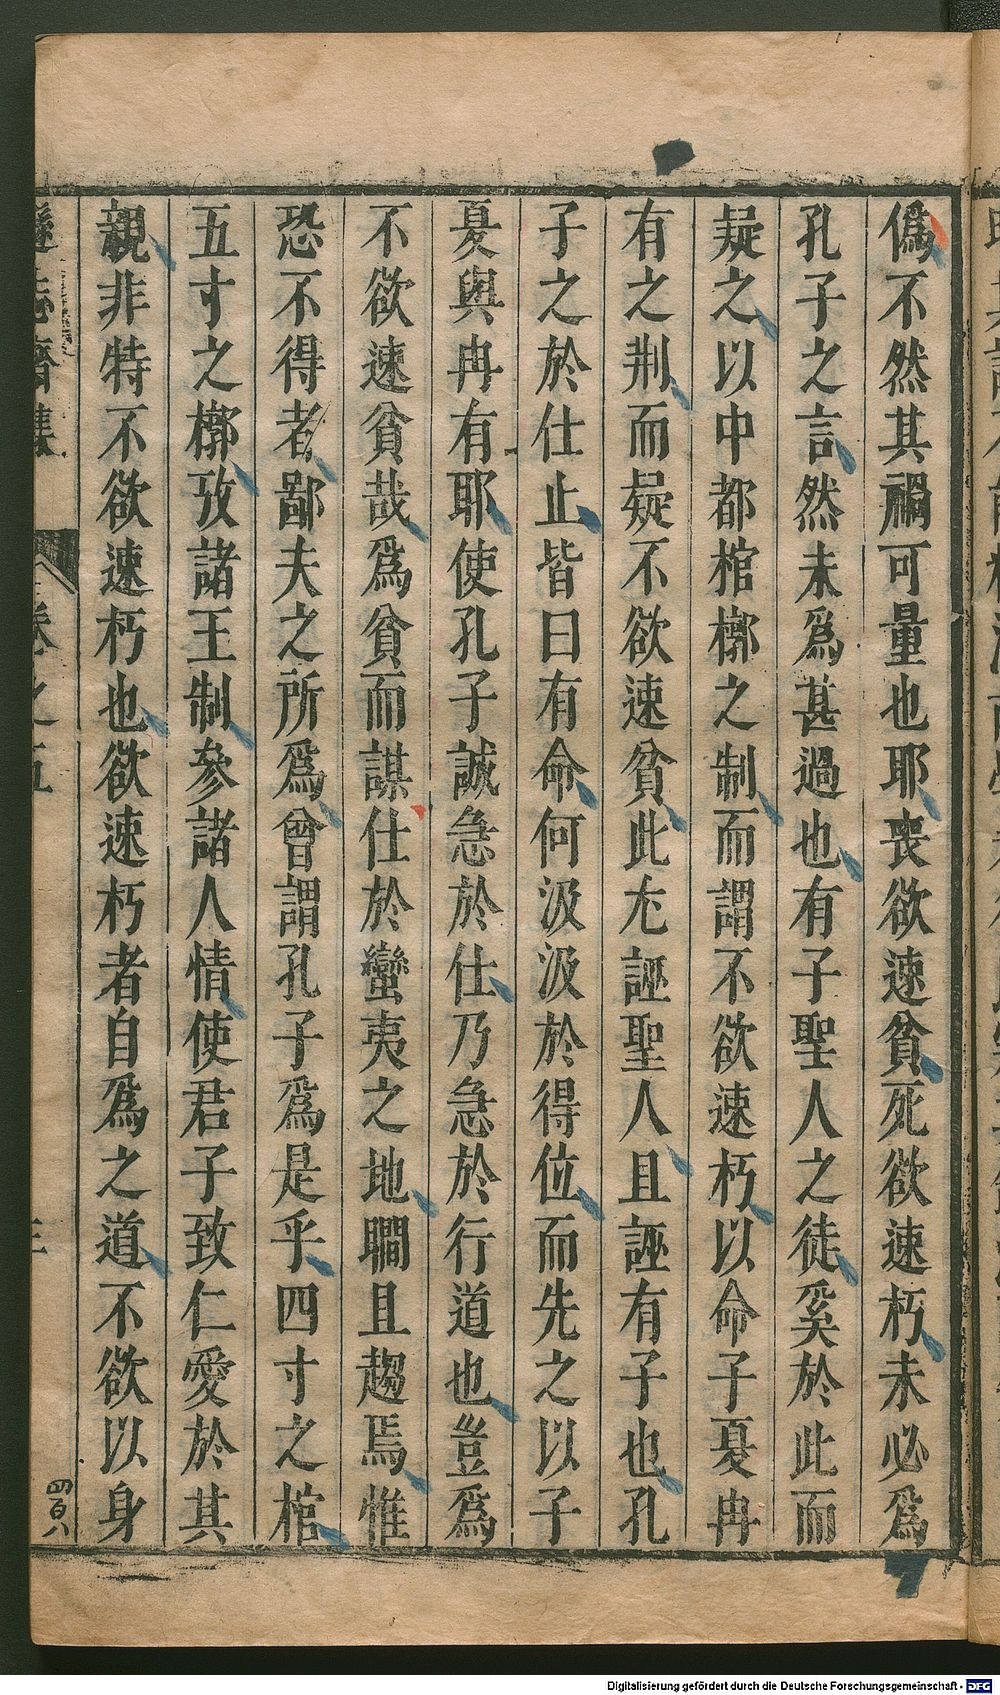 偽不然其禍可量也耶喪欲速貧死欲速朽未必爲
孔子之言然未爲甚過也有子聖人之徒奚於此而
疑之以中都棺槨之制而謂不欲速朽以命子夏冉
有之荆而疑不欲速貧此尤誣聖人且誣有子也孔
子之於仕止皆曰有命何汲汲於得位而先之以子
夏與冉有耶使孔子誠急於仕乃急於行道也豈爲
不欲速貧哉爲貧而謀仕於蠻夷之地瞷且趨焉惟
恐不得者鄙夫之所爲曾謂孔子爲是乎四寸之棺
五寸之槨攷諸王制參諸人情使君子致仁愛於其
親非特不欲速朽也欲速朽者自爲之道不欲以身
遜志齋集
卷之五
四百八
Digitalisierung gefördert durch die Deutsche Forschungsgemeinschaft - DFG